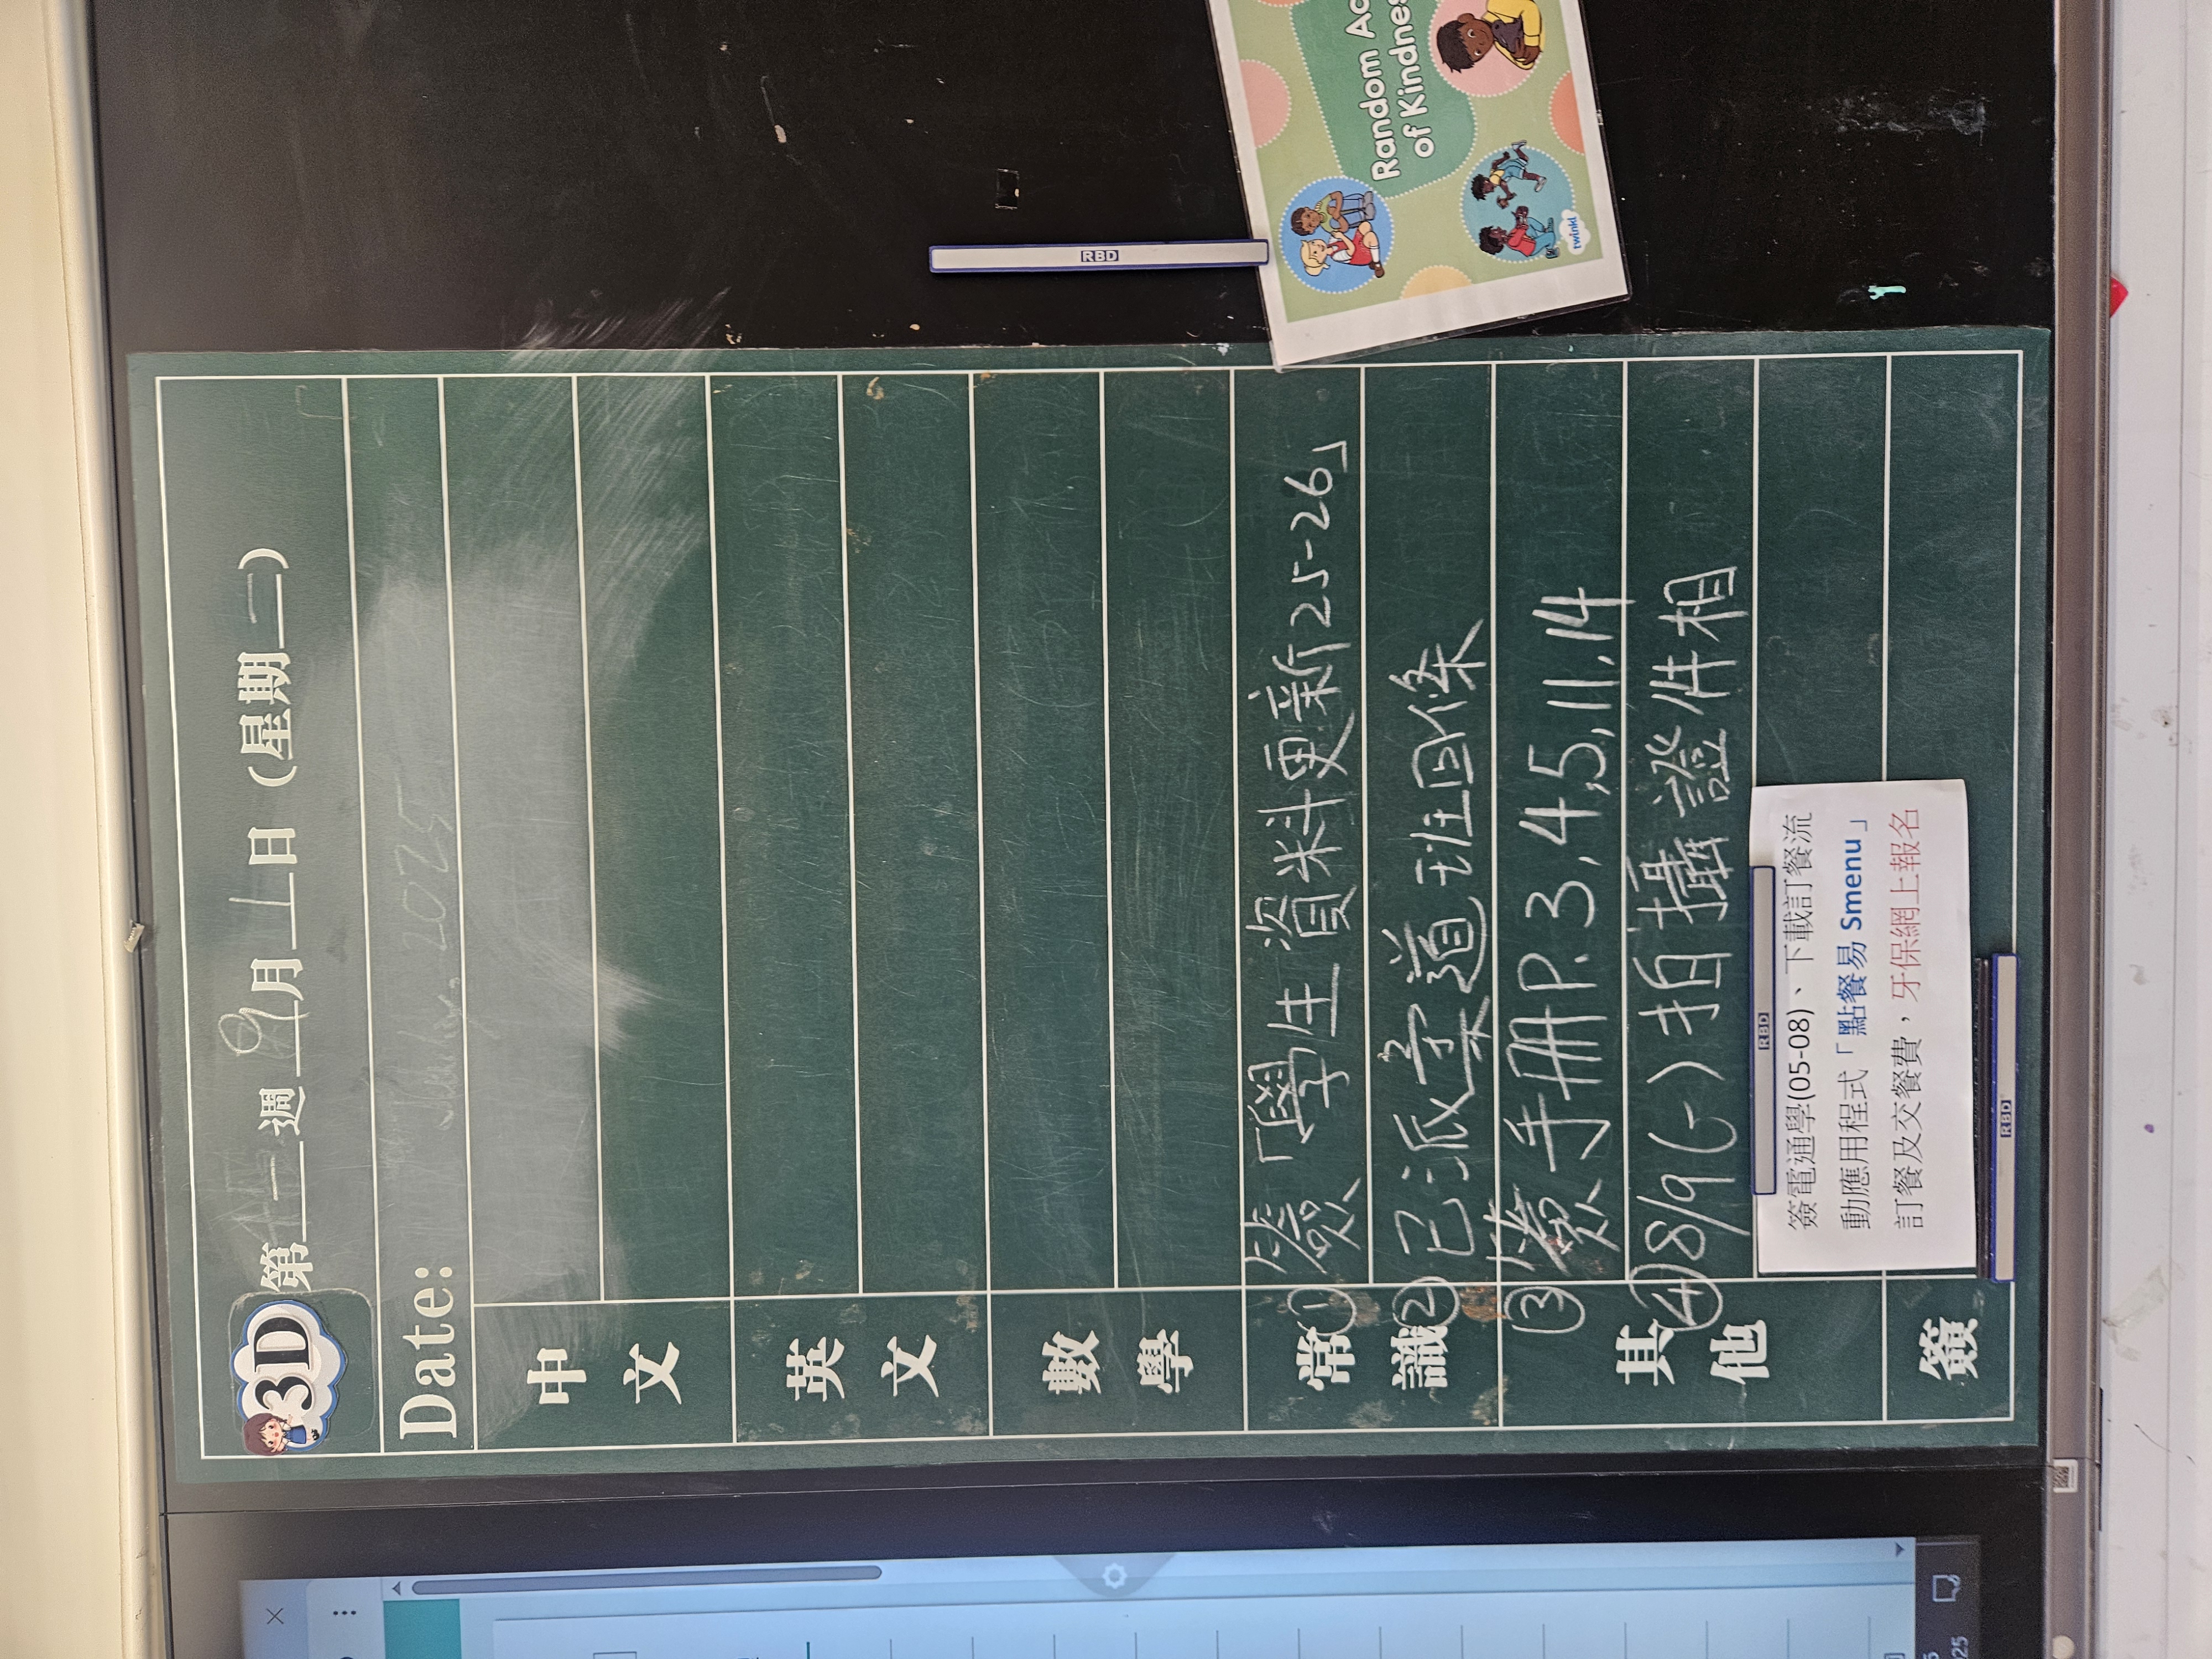 3D 第十一週 9月 日 (星期二)
Date:
中文
英文
數學
常識
① 簽「學生資料更新25-26」
② 已派柔道班回條
其他
③ 簽手冊P.3,4,5,11,14
④ 8/9(一)拍攝證件相
簽電通學(05-08)、下載訂餐流
動應用程式「點餐易 Smenu」
訂餐及交餐費，牙保網上報名
簽
RBD
RBD
RBD
Random Ac
of Kindnes
twinkl
25